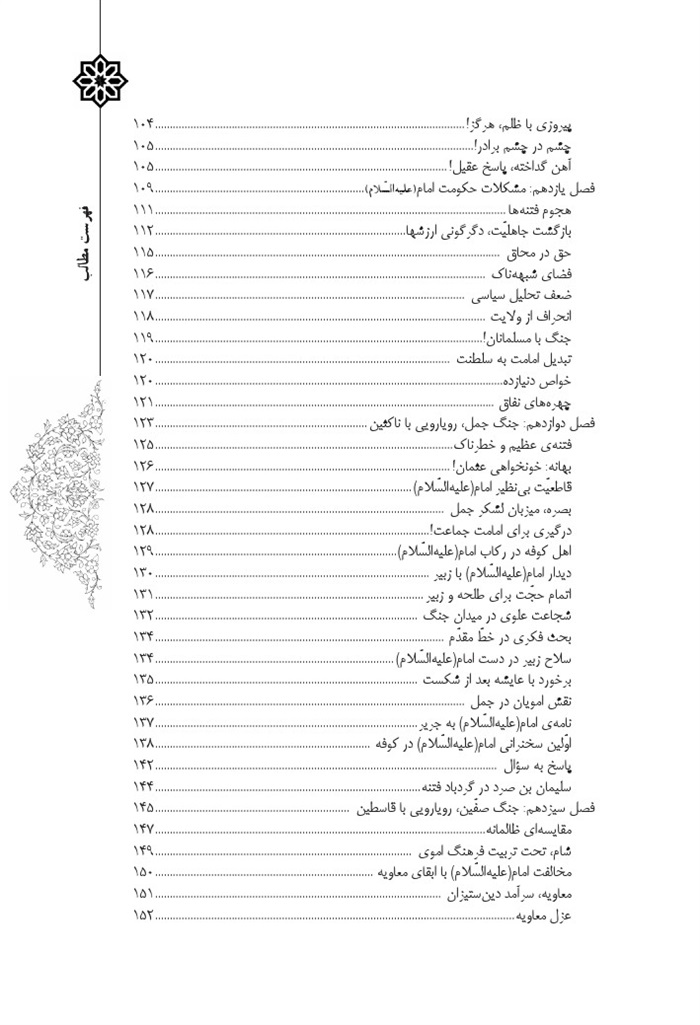 فهرست مطالب
پیروزی با ظلم، هرگز!..........۱۰۴
چشم در چشم برادر!..........۱۰۵
آهن گداخته، پاسخ عقیل!..........۱۰۵
فصل یازدهم: مشکلات حکومت امام(علیه‌السّلام)..........۱۰۹
هجوم فتنه‌ها..........۱۱۱
بازگشت جاهلیّت، دگرگونی ارزشها..........۱۱۲
حق در محاق ..........۱۱۵
فضای شبهه‌ناک ..........۱۱۶
ضعف تحلیل سیاسی ..........۱۱۷
انحراف از ولایت ..........۱۱۸
جنگ با مسلمانان!..........۱۱۹
تبدیل امامت به سلطنت ..........۱۲۰
خواص دنیازده..........۱۲۰
چهره‌های نفاق ..........۱۲۱
فصل دوازدهم: جنگ جمل، رویارویی با ناکثین ..........۱۲۳
فتنه‌ی عظیم و خطرناک..........۱۲۵
بهانه: خونخواهی عثمان!..........۱۲۶
قاطعیّت بی‌نظیر امام(علیه‌السّلام)..........۱۲۷
بصره، میزبان لشکر جمل ..........۱۲۸
درگیری برای امامت جماعت!..........۱۲۸
اهل کوفه در رکاب امام(علیه‌السّلام)..........۱۲۹
دیدار امام(علیه‌السّلام) با زبیر ..........۱۳۰
اتمام حجّت برای طلحه و زبیر..........۱۳۱
شجاعت علوی در میدان جنگ ..........۱۳۲
بحث فکری در خطّ مقدّم ..........۱۳۴
سلاح زبیر در دست امام(علیه‌السّلام)..........۱۳۴
برخورد با عایشه بعد از شکست ..........۱۳۵
نقش امویان در جمل ..........۱۳۶
نامه‌ی امام(علیه‌السّلام) به جریر..........۱۳۷
اوّلین سخنرانی امام(علیه‌السّلام) در کوفه ..........۱۳۸
پاسخ به سؤال ..........۱۴۲
سلیمان بن صرد در گردباد فتنه..........۱۴۴
فصل سیزدهم: جنگ صفّین، رویارویی با قاسطین ..........۱۴۵
مقایسه‌ای ظالمانه..........۱۴۷
شام، تحت تربیت فرهنگ اموی ..........۱۴۹
مخالفت امام(علیه‌السّلام) با ابقای معاویه ..........۱۵۰
معاویه، سرآمد دین‌ستیزان ..........۱۵۱
عزل معاویه..........۱۵۲